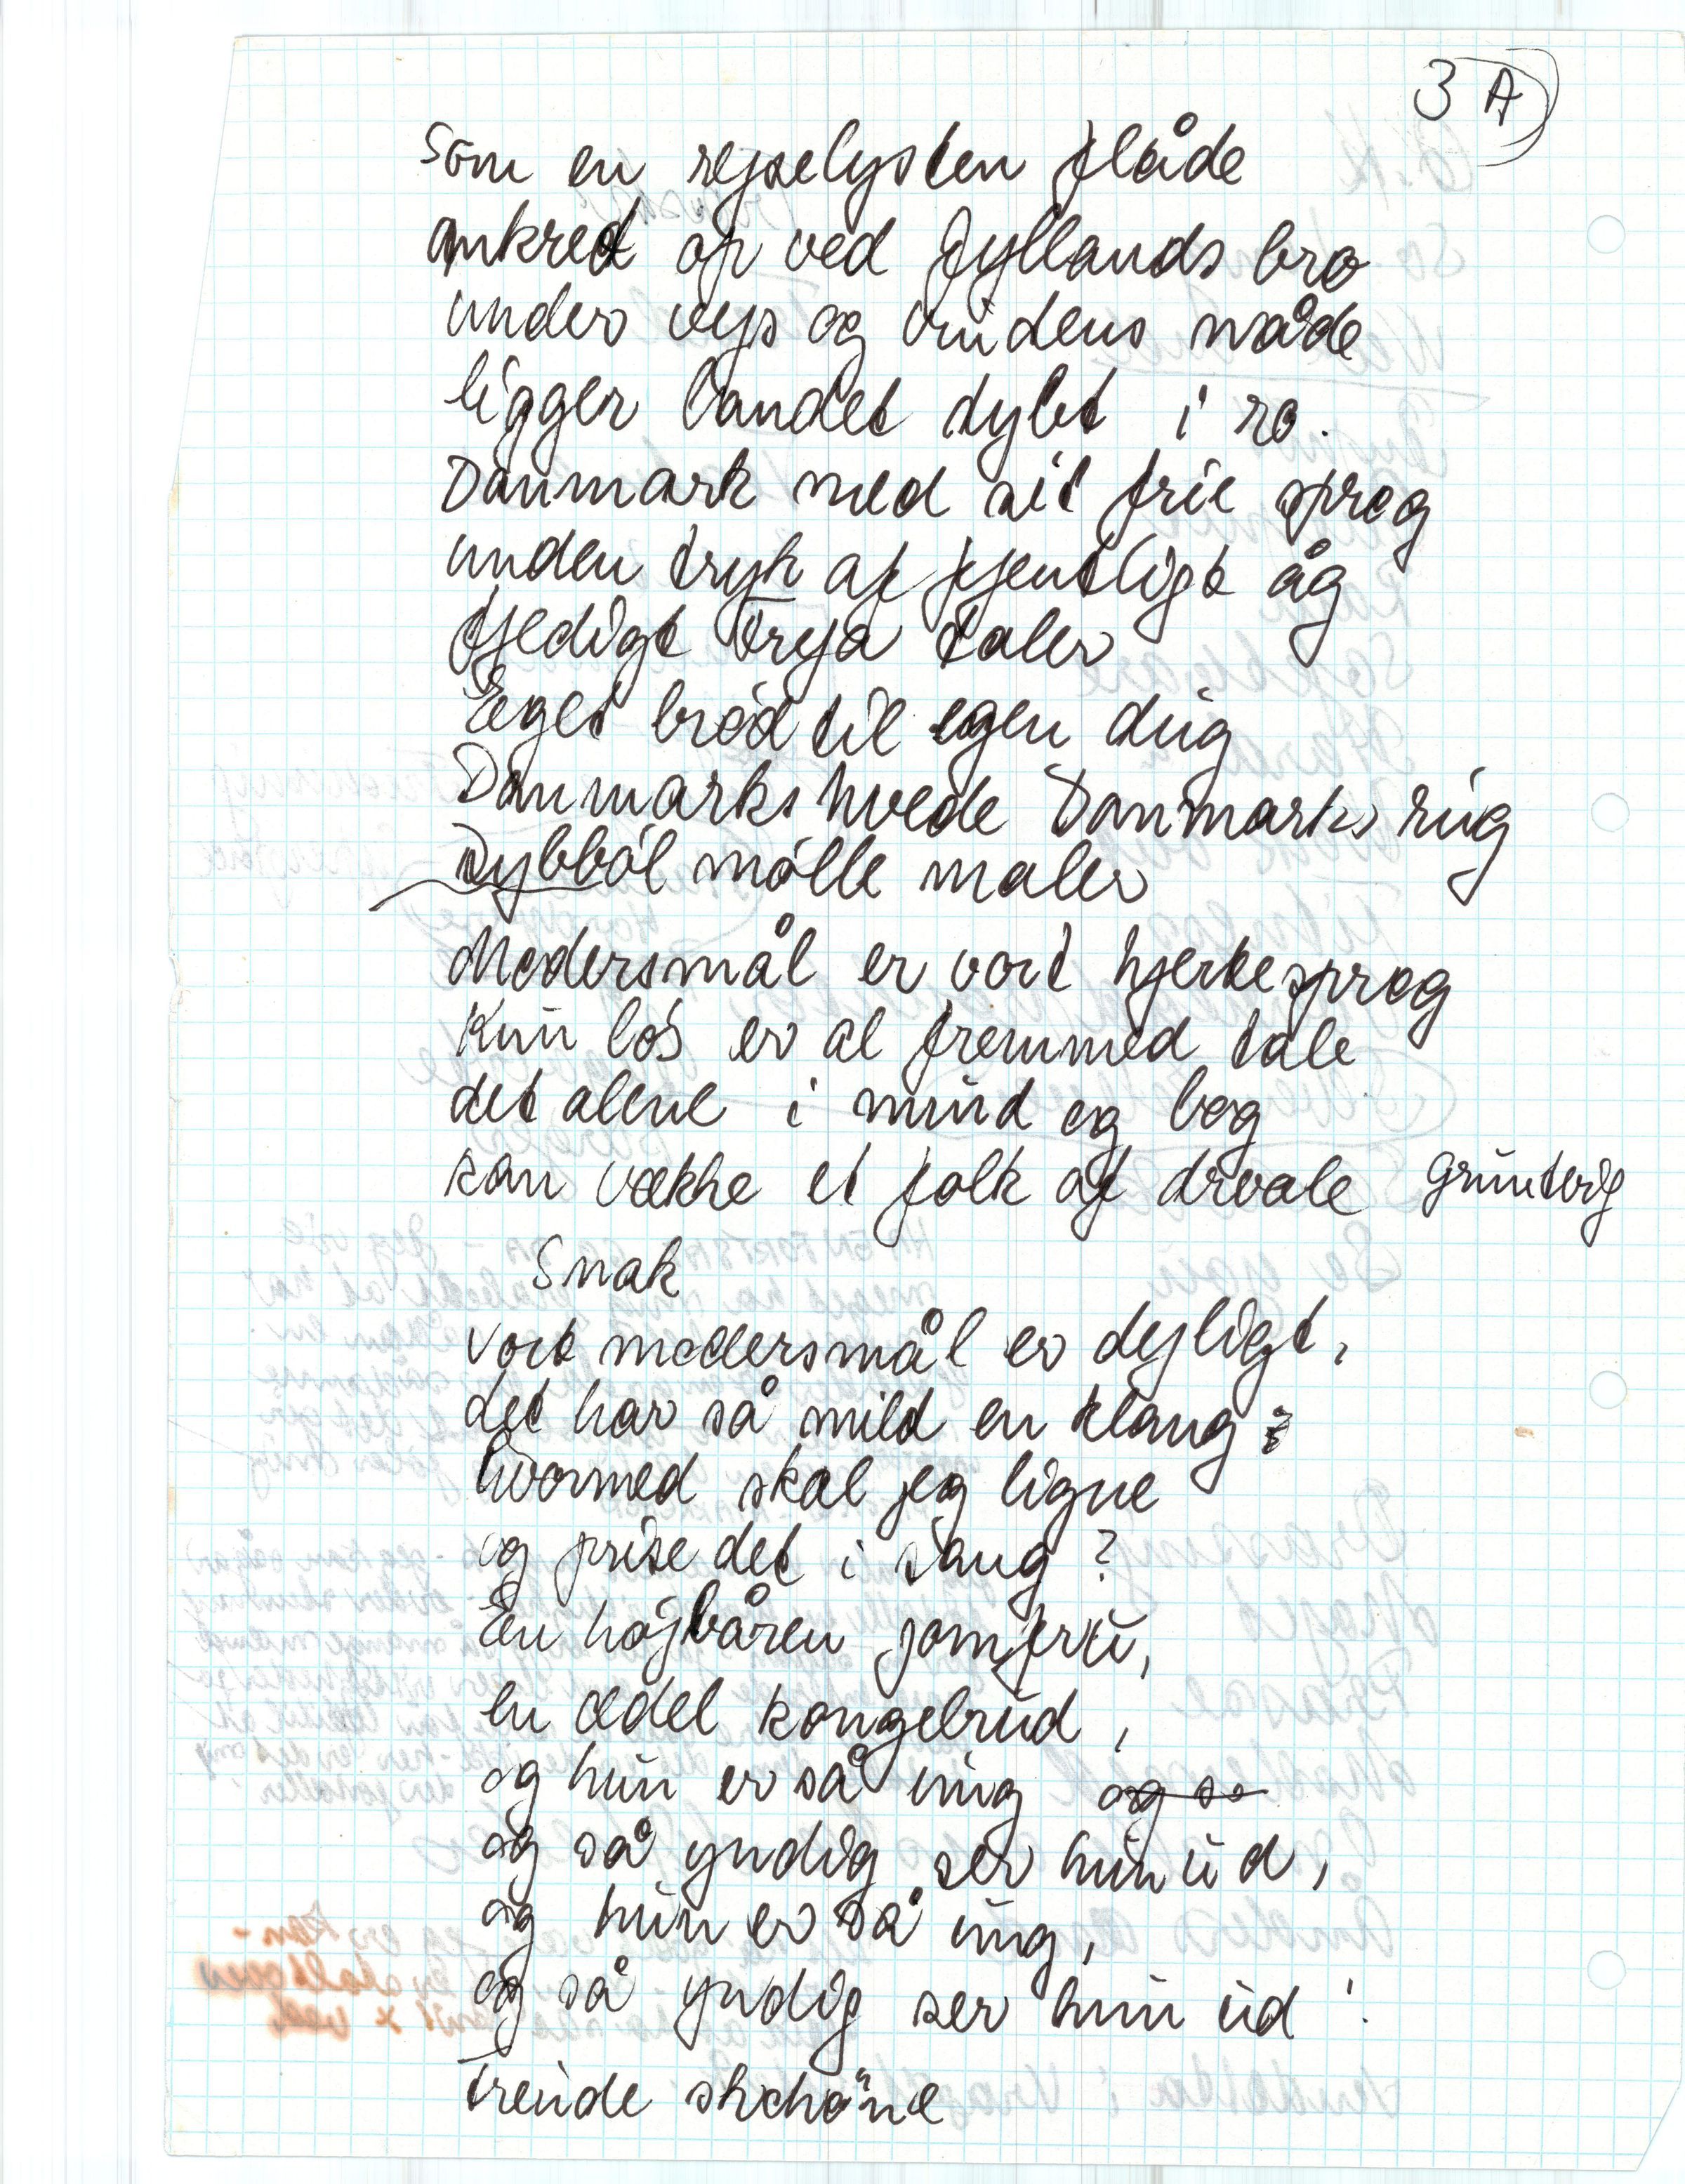 3 A
Som en rejselysten flåde
ankret op ved Jyllands bro
under vejs og vindens nåde
ligger landet dybt i ro.
Danmark med sit frie sprog
unden tryk af fjentligt åg
fjedigt Freja taler
Eget bröd til egen dug
Danmarks hvede Danmarks rug
Dybböl mölle maler
Modersmål er vort hjertesprog
Kun lös er al fremmed tale
det alene i mund og bog
kan vække et folk af dvale Gruntvig
Snak
Vort modersmål er dejligt,
det har så mild en klang;
hvormed skal jeg ligne
og prise det i sang?
En højbåren jomfru,
en ædel kongebrud,
og hun er så ung og so
og så yndig ser hun ud,
og hun er så ung,
og så yndig ser hun ud!